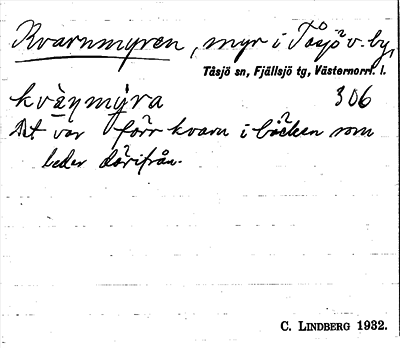 Kvarnmyren, myr i Tåsjö v. by,
Tåsjö sn, Fjällsjö tg, Västernorrl. l.
kvà̄ɳmy̍ra 306
Det var förr kvarn i bäcken som
leder därifrån.
C. LINDBERG 1932.